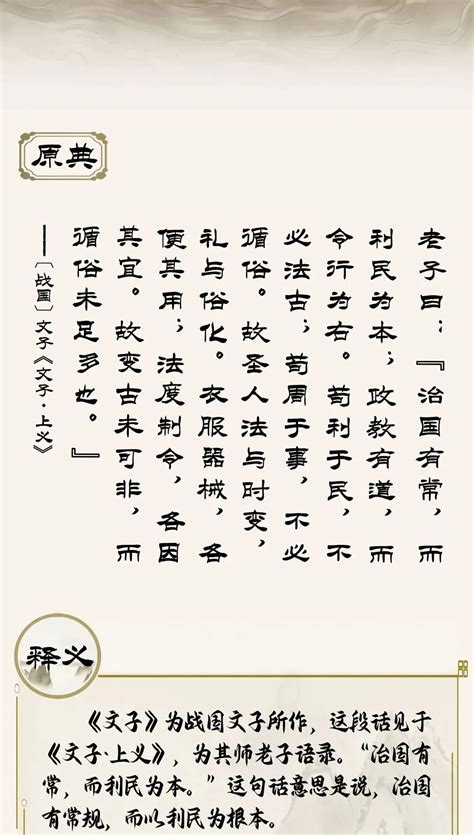 原典
老子曰：『治国有常，而
利民为本；政教有道，而
令行为右。苟利于民，不
必法古；苟周于事，不必
循俗。故圣人法与时变，
礼与俗化。衣服器械，各
便其用；法度制令，各因
其宜。故变古未可非，而
循俗未足多也。』
——〔战国〕文子《文子·上义》
释义
《文子》为战国文子所作，这段话见于
《文子·上义》，为其师老子语录。“治国有
常，而利民为本。”这句话意思是说，治国
有常规，而以利民为根本。